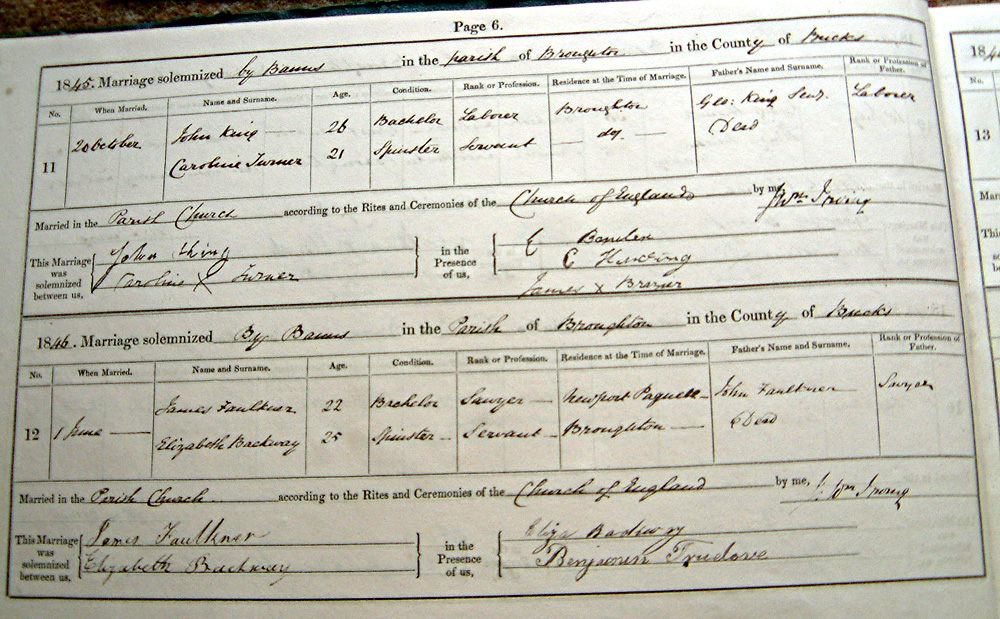 Page 6.
1845. Marriage solemnized by Banns in the parish of Broughton in the County of Bucks
No. When Married. Name and Surname. Age. Condition. Rank or Profession. Residence at the Time of Marriage. Father's Name and Surname. Rank or Profession of Father.
11 20 October John King 26 Bachelor Laborer Broughton Geo: King Senr. Laborer
Caroline Turner 21 Spinster Servant do. Dead
Married in the Parish Church according to the Rites and Ceremonies of the Church of England by me, Wm Irving
This Marriage was solemnized between us, John King in the Presence of us,
Caroline X Turner
James X Brazier
1846. Marriage solemnized By Banns in the Parish of Broughton in the County of Bucks
No. When Married. Name and Surname. Age. Condition. Rank or Profession. Residence at the Time of Marriage. Father's Name and Surname. Rank or Profession of Father.
12 1 June James Faulkner 22 Bachelor Sawyer Newport Pagnell John Faulkner Sawyer
Elizabeth Backway 25 Spinster Servant Broughton Dead
Married in the Parish Church according to the Rites and Ceremonies of the Church of England by me, J. Wm Irving
This Marriage was solemnized between us, James Faulkner in the Presence of us, Eliza Backway
Elizabeth Backway Benjamin Truelove
184
No.
13
Married
This
so
be